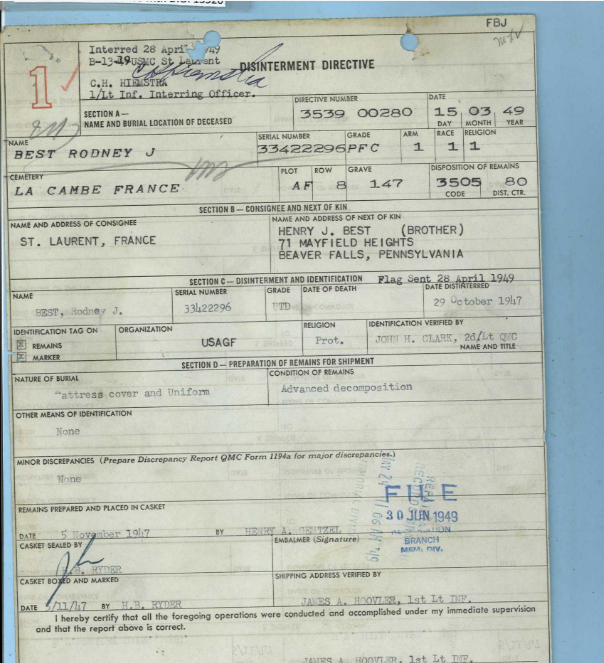 FBJ
Interred 28 April 1949
B-13-19 USMC St Laurent
C.H. HIEMSTRA
1/Lt Inf. Interring Officer.
1
DISINTERMENT DIRECTIVE
SECTION A —
NAME AND BURIAL LOCATION OF DECEASED
DIRECTIVE NUMBER
3539 00280
DATE
15 03 49
DAY MONTH YEAR
NAME
BEST RODNEY J
SERIAL NUMBER
33422296
GRADE
PFC
ARM
1
RACE
1
RELIGION
1
CEMETERY
LA CAMBE FRANCE
PLOT
AF
ROW
8
GRAVE
147
DISPOSITION OF REMAINS
3505 80
CODE DIST. CTR.
SECTION B — CONSIGNEE AND NEXT OF KIN
NAME AND ADDRESS OF CONSIGNEE
ST. LAURENT, FRANCE
NAME AND ADDRESS OF NEXT OF KIN
HENRY J. BEST (BROTHER)
71 MAYFIELD HEIGHTS
BEAVER FALLS, PENNSYLVANIA
SECTION C — DISINTERMENT AND IDENTIFICATION Flag Sent 28 April 1949
NAME
BEST, Rodney J.
SERIAL NUMBER
33422296
GRADE
UTD
DATE OF DEATH
DATE DISTINTERRED
29 October 1947
IDENTIFICATION TAG ON
REMAINS
MARKER
ORGANIZATION
USAGF
RELIGION
Prot.
IDENTIFICATION VERIFIED BY
JOHN H. CLARK, 2d/Lt QMC
NAME AND TITLE
SECTION D — PREPARATION OF REMAINS FOR SHIPMENT
NATURE OF BURIAL
attress cover and Uniform
CONDITION OF REMAINS
Advanced decomposition
OTHER MEANS OF IDENTIFICATION
None
MINOR DISCREPANCIES (Prepare Discrepancy Report QMC Form 1194a for major discrepancies.)
None
REMAINS PREPARED AND PLACED IN CASKET
DATE 5 November 1947 BY HENRY A. GENTZEL
FILE
30 JUN 1949
BRANCH
MEM. DIV.
CASKET SEALED BY
RYDER
EMBALMER (Signature)
CASKET BOXED AND MARKED
DATE 5/11/47 BY H.B. RYDER
SHIPPING ADDRESS VERIFIED BY
JAMES A. HOOVLER, 1st Lt INF.
I hereby certify that all the foregoing operations were conducted and accomplished under my immediate supervision
and that the report above is correct.
JAMES A. HOOVLER, 1st Lt INF.